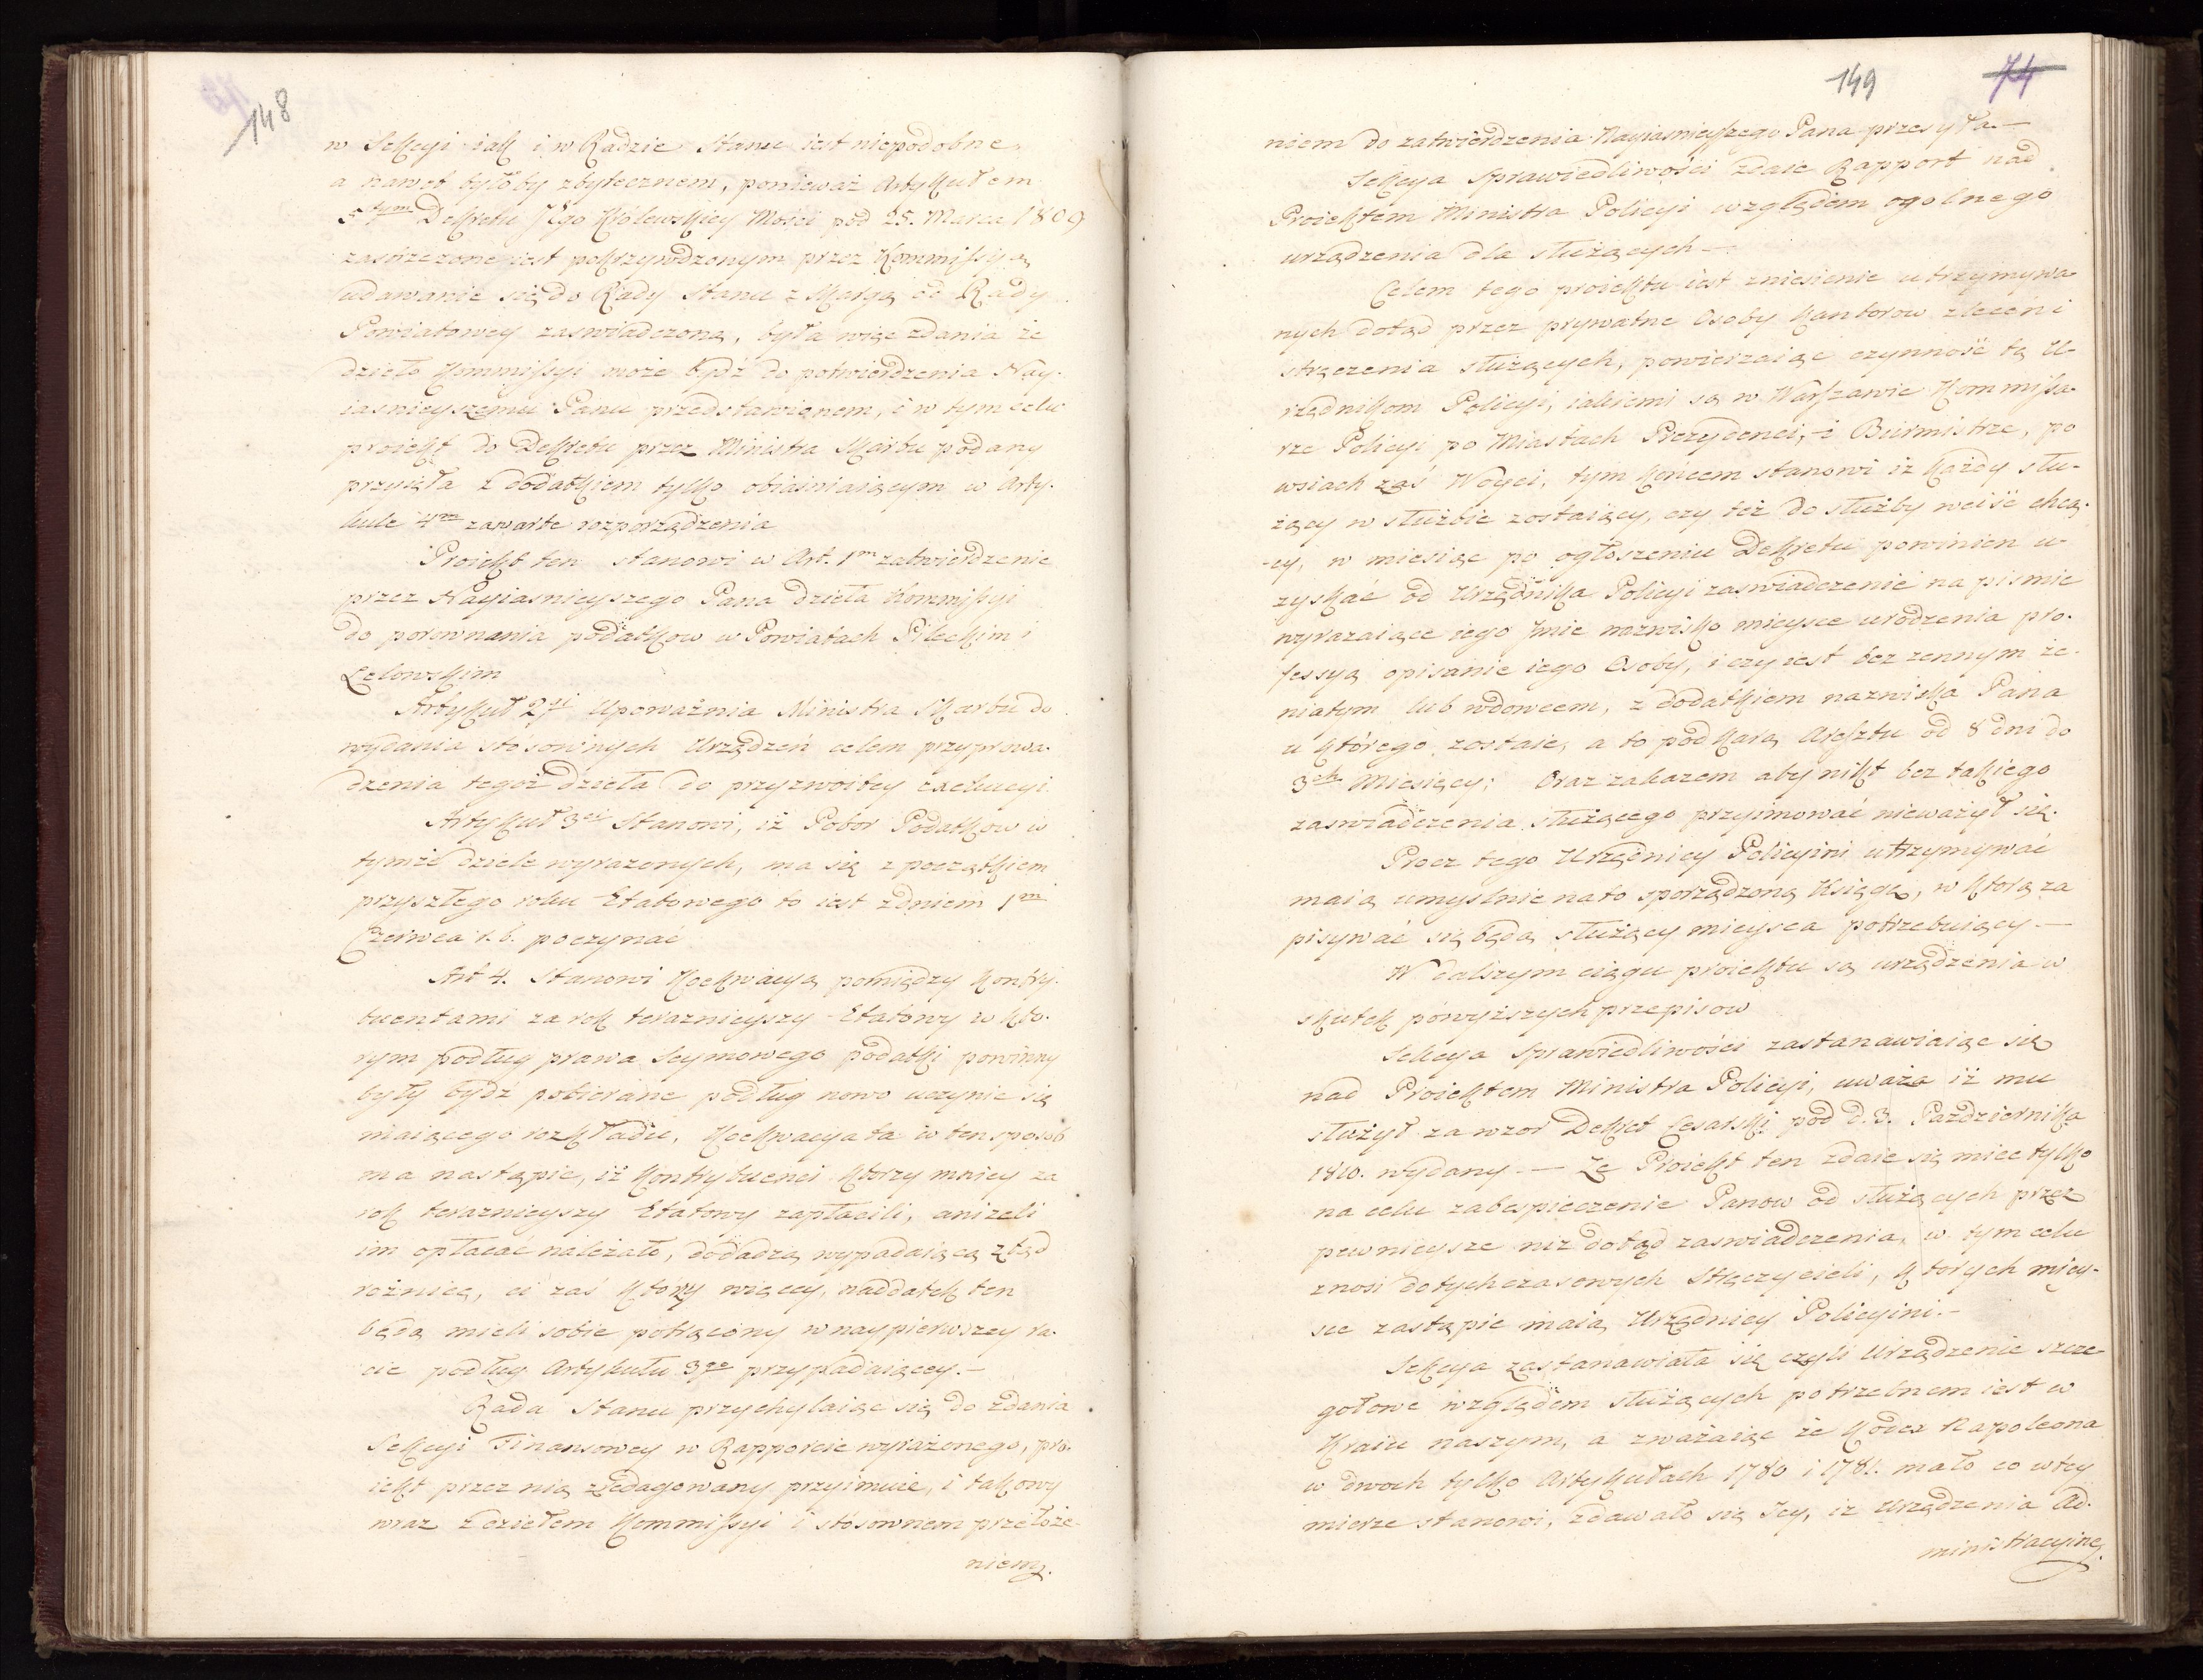 148
w Sekcyi iak i w Radzie Stanu iest niepodobne,
a nawet byłoby zbytecznem, ponieważ Artykułem
5tym Dekretu JKgo Królewskiey Mości pod 25. Marca 1809
zastrzeżone iest pokrzywdzonym przez Kommissyą
udawanie się do Rady Stanu z skargą od Rady
Powiatowey zaswiadczoną, była więc zdania że
dzieło Kommissyi może bydź do potwierdzenia Nay-
iasnieyszemu Panu przedstawionem, i w tym celu
proiekt do Dekretu przez Ministra Skarbu podany
przyięła z dodatkiem tylko obiaśniaiącym w Arty-
kule 4m zawarte rozporządzenia
Proiekt ten stanowi w Art. 1m zatwierdzenie
przez Nayiasnieyszego Pana dzieła Kommissyi
do porownania podatkow w Powiatach Pileckim i
Lelowskim
Artykuł 2gi Upoważnia Ministra Skarbu do
wydania stosownych Urządzeń celem przyprowa-
dzenia tegoż dzieła do przyzwoitey exekucyi
Artykuł 3ci Stanowi, iż Pobor Podatkow w
tymże dziele wyrazonych, ma się z początkiem
przyszłego roku Etatowego to iest z dniem 1m
Czerwca r. b. poczynać
Art 4. Stanowi Koekwacyą pomiędzy Kontry-
buentami za rok terazniejszy Etatowy w kto-
rym podług prawa Seymowego podatki powinny
były bydź pobierane podług nowo uczynić się
maiącego rozkładu. Koekwacya ta w ten sposob
ma nastąpic, iż Kontrybuenci ktorzy mniey za
rok terazniejszy Etatowy zapłacili, anizeli
im opłacać należało, dodadzą wypadaiącą ztąd
rożnicę, ci zaś ktorzy więcey, naddatek ten
będą mieli sobie potrącony w naypierwszey ra-
cie podług Artykułu 3go przypadaiącey.—
Rada Stanu przychylaiąc się do zdania
Sekcyi Finansowey w Rapporcie wyrażonego, pro-
iekt przez nią zredagowany przyimuie, i takowy
wraz z dziełem Kommissyi i stosownem przełoże-
niem.
149 74
niem do zatwierdzenia Nayiasnieyszego Pana przesyła.—
Sekcya Sprawiedliwości zdaie Rapport nad
Proiektem Ministra Policyi względem ogolnego
urządzenia dla służących—.
Celem tego proiektu iest zniesienie utrzymywa-
nych dotąd przez prywatne Osoby kantorow zleceń i
stręczenia służących, powierzaiąc czynność tą U-
rzędnikom Policyi, iakiemi są w Warszawie Kommissa-
rze Policyi po Miastach Prezydenci, i Burmistrze, po
wsiach zaś Woyci, tym końcem stanowi iz każdy słu-
żący w służbie zostaiący, czy też do służby weiść chcą-
-cy, w miesiąc po ogłoszeniu Dekretu powinien u-
zyskać od Urzędnika Policyi zaswiadczenie na pismie
wyrazaiące iego Imie nazwisko mieysce urodzenia pro-
fessyą opisanie iego Osoby, i czy iest bezzennym że-
niatym lub wdowcem, z dodatkiem nazwiska Pana
u którego zostaie, a to pod karą Aresztu od 8 dni do
3ch Miesięcy; Oraz zakazem aby nikt bez takiego
zaswiadczenia służącego przyimować nieważył się.
Procz tego Urzędnicy Policyini utrzymywać
maią umyslnie na to sporządzoną Xsięgę, w którą za-
pisywać się będą służący mieysca potrzebuiący—
W dalszym ciągu proiektu są urządzenia w
skutek powyższych przepisow
Sekcya Sprawiedliwości zastanawiaiąc się
nad Proiektem Ministra Policyi, uważa iż mu
służył za wzor Dekret Cesarski pod d. 3. Pazdziernika
1810. wydany.— Ze Proiekt ten zdaie się mieć tylko
na celu zabespieczenie Panow od służących przez
pewnieysze niż dotąd zaswiadczenia, w tym celu
znosi dotychczasowych stręczycieli, ktorych miey-
sce zastąpic maią Urzędnicy Policyini.—
Sekcya zastanawiała się czyli Urządzenie szcze-
gołowe względem służących potrzebnem iest w
Kraiu naszym, a zważaiąc że Kodex Napoleona
w dwoch tylko Artykułach 1780 i 1781. mało co w tey
mierze stanowi, zdawało się Jey, iz Urządzenia Ad-
ministracyine.